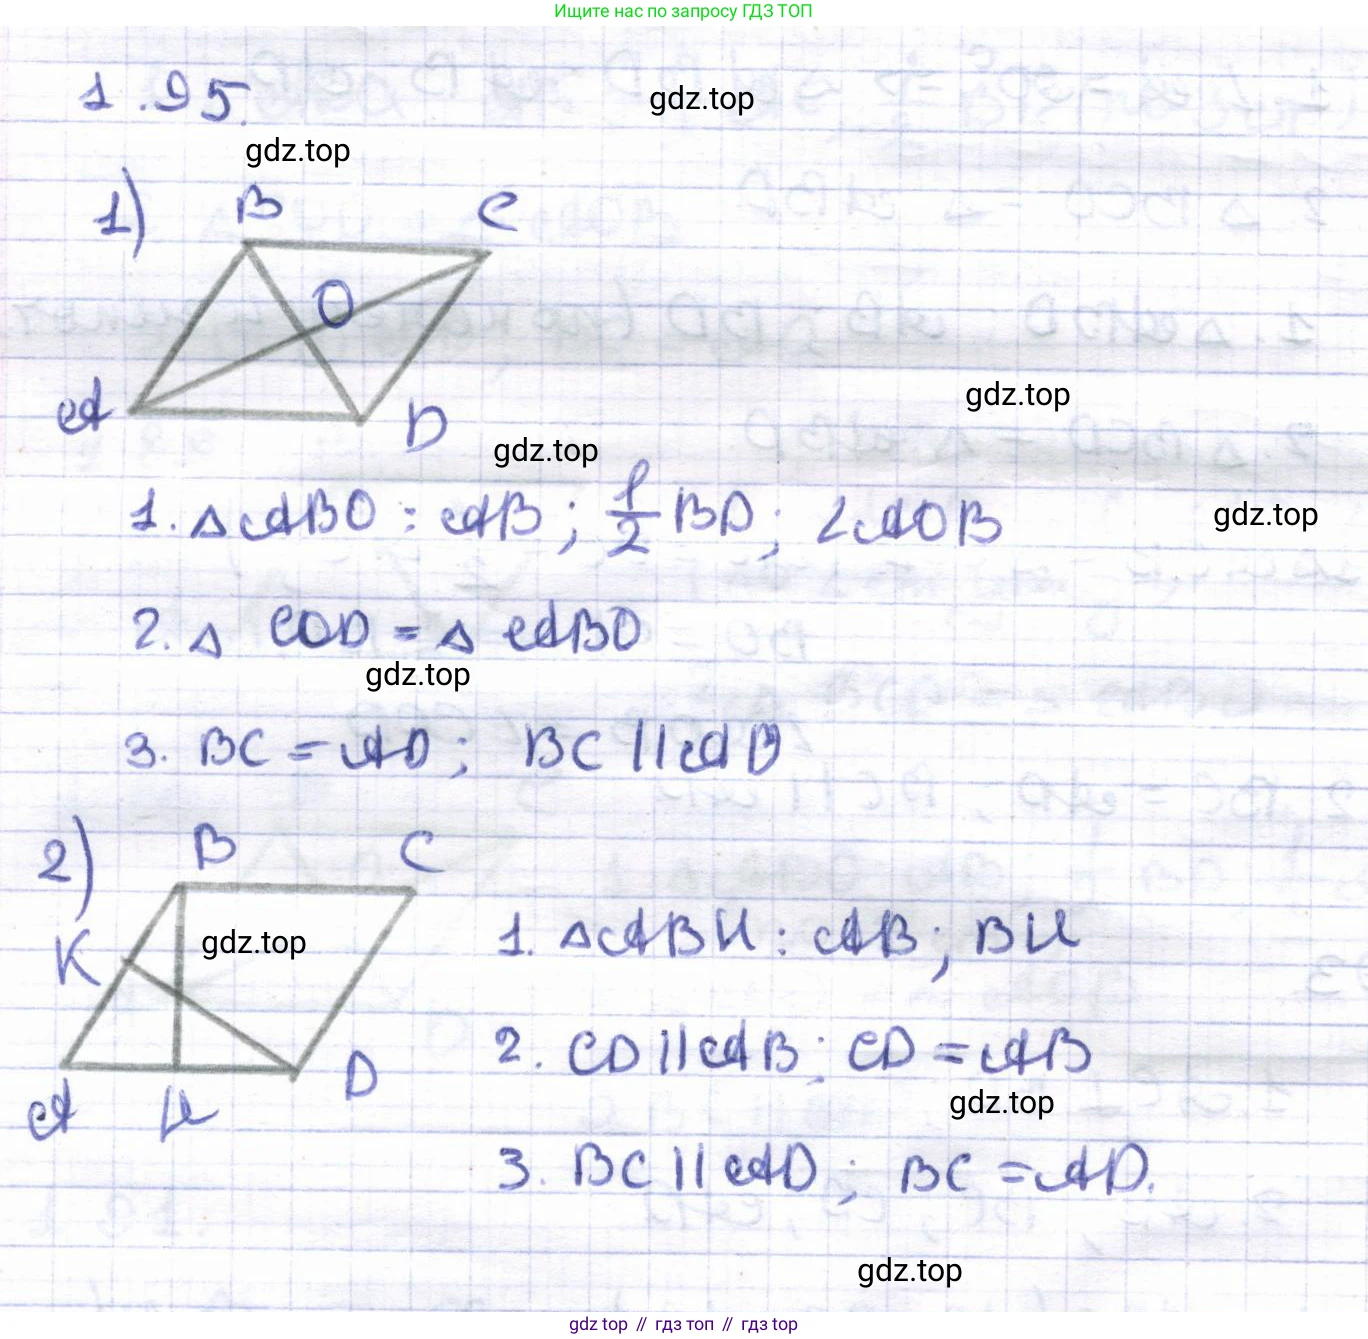 Ищите нас по запросу ГДЗ ТОП
1.95.
gdz.top
gdz.top
1) B C
O
gdz.top
A D
gdz.top
1. △ABO : AB ; 1/2 BD ; ∠AOB
gdz.top
2. △ COD = △ ABO
gdz.top
3. BC = AD ; BC || AD
2) B C
K gdz.top
A H D
1. △ABH : AB ; BH
2. CD || AB ; CD = AB
gdz.top
3. BC || AD ; BC = AD.
gdz.top
gdz top // гдз топ // гдз top